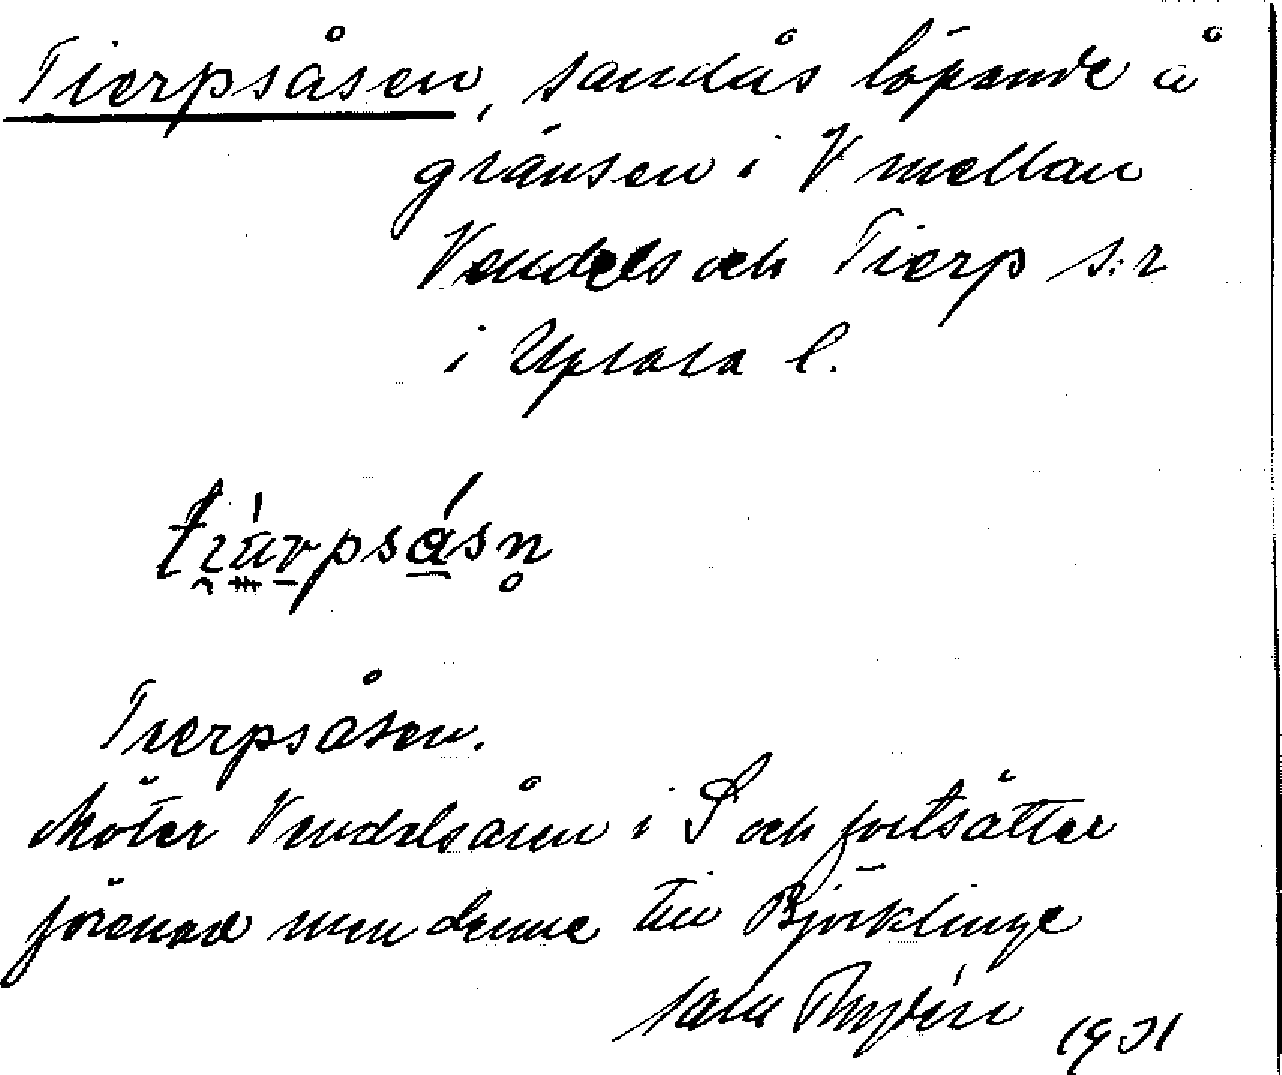 Tierpsåsen, sandås löpande å
gränsen i V mellan
Vendels och Tierp s:r
i Upsala l.
Tierpsåsen.
Möter Vendelsåsen i S och fortsätter
förenad med denne till Björklinge
1931